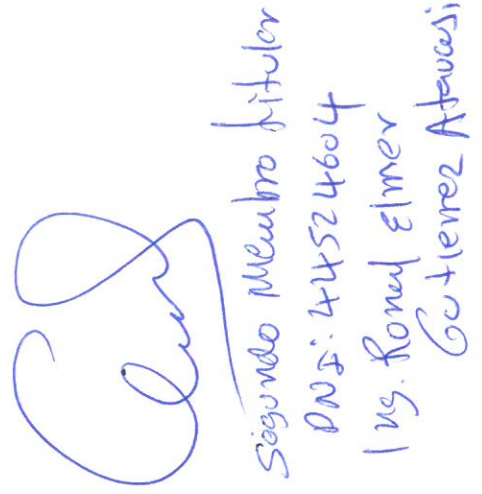 Segundo Miembro titular
DNI: 44524604
Ing. Ronal Elmer
Gutierrez Ataucusi